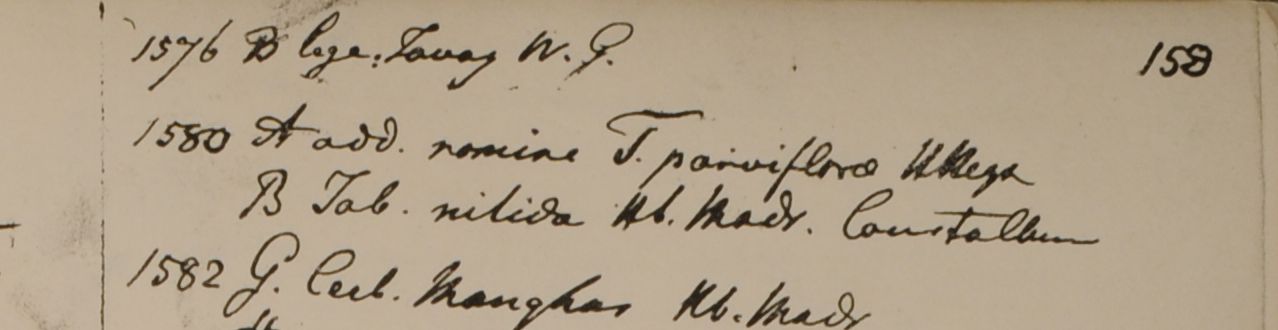 1576 B lege: Tavoy W. G. 158
1580 A add. nomine T. parviflora H Heyn
B Tab. nitida Hb. Madr. Courtallum
1582 G. Cerb. Manghas Hb. Madr